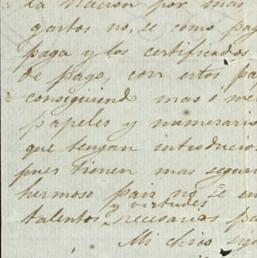 la nacion por mas
gastos no, se como pag
paga y los certificados
de pago, con estos pap
consiguiend mas ó me
papeles y numerario
que tengan introducio
pues tienen mas segur
hermoso pais no se en
y virtudes
talentos necesarias pa
Mi chico sig